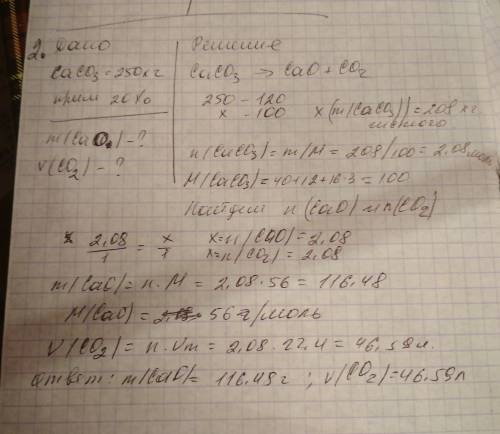 2. Дано
CaCO3 = 250кг
прим 20%
m(CaO) - ?
V(CO2) - ?
Решение
CaCO3 → CaO + CO2
250 - 120
x - 100 x (m(CaCO3)) = 208 кг
чистого
n(CaCO3) = m/M = 208/100 = 2,08 моль
M(CaCO3) = 40+12+16·3 = 100
Найдем n(CaO) и n(CO2)
2,08/1 = x/1 x=n(CaO) = 2,08
x=n(CO2) = 2,08
m(CaO) = n·M = 2,08·56 = 116,48
M(CaO) = 56 г/моль
V(CO2) = n·Vm = 2,08·22,4 = 46,59л.
Ответ: m(CaO) = 116,48г ; V(CO2) = 46,59л